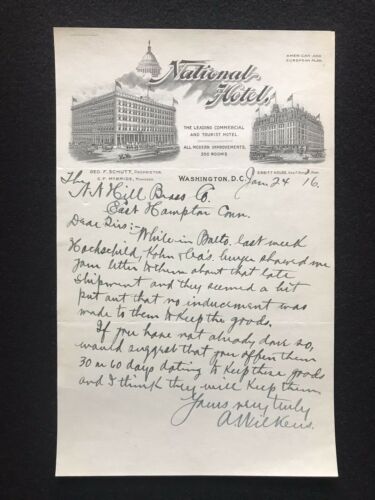 AMERICAN AND
EUROPEAN PLAN.
National
Hotel,
THE LEADING COMMERCIAL
AND TOURIST HOTEL.
ALL MODERN IMPROVEMENTS,
350 ROOMS
GEO. F. SCHUTT, PROPRIETOR.
G.F. MYBRIDE, MANAGER.
EBBITT HOUSE,
WASHINGTON, D.C. Jan 24 16.
The N.N. Hill Brass Co.
East Hampton Conn.
Dear Sirs:- While in Balto, last week
Hochschild, Kohn & Co's. buyer showed me
your letter to them about that late
shipment and they seemed a bit
put out that no inducement was
made to them to keep the goods.
If you have not already done so,
would suggest that you offer them
30 or 60 days dating to keep these goods
and I think they will keep them
Yours very truly
A Wilkens.